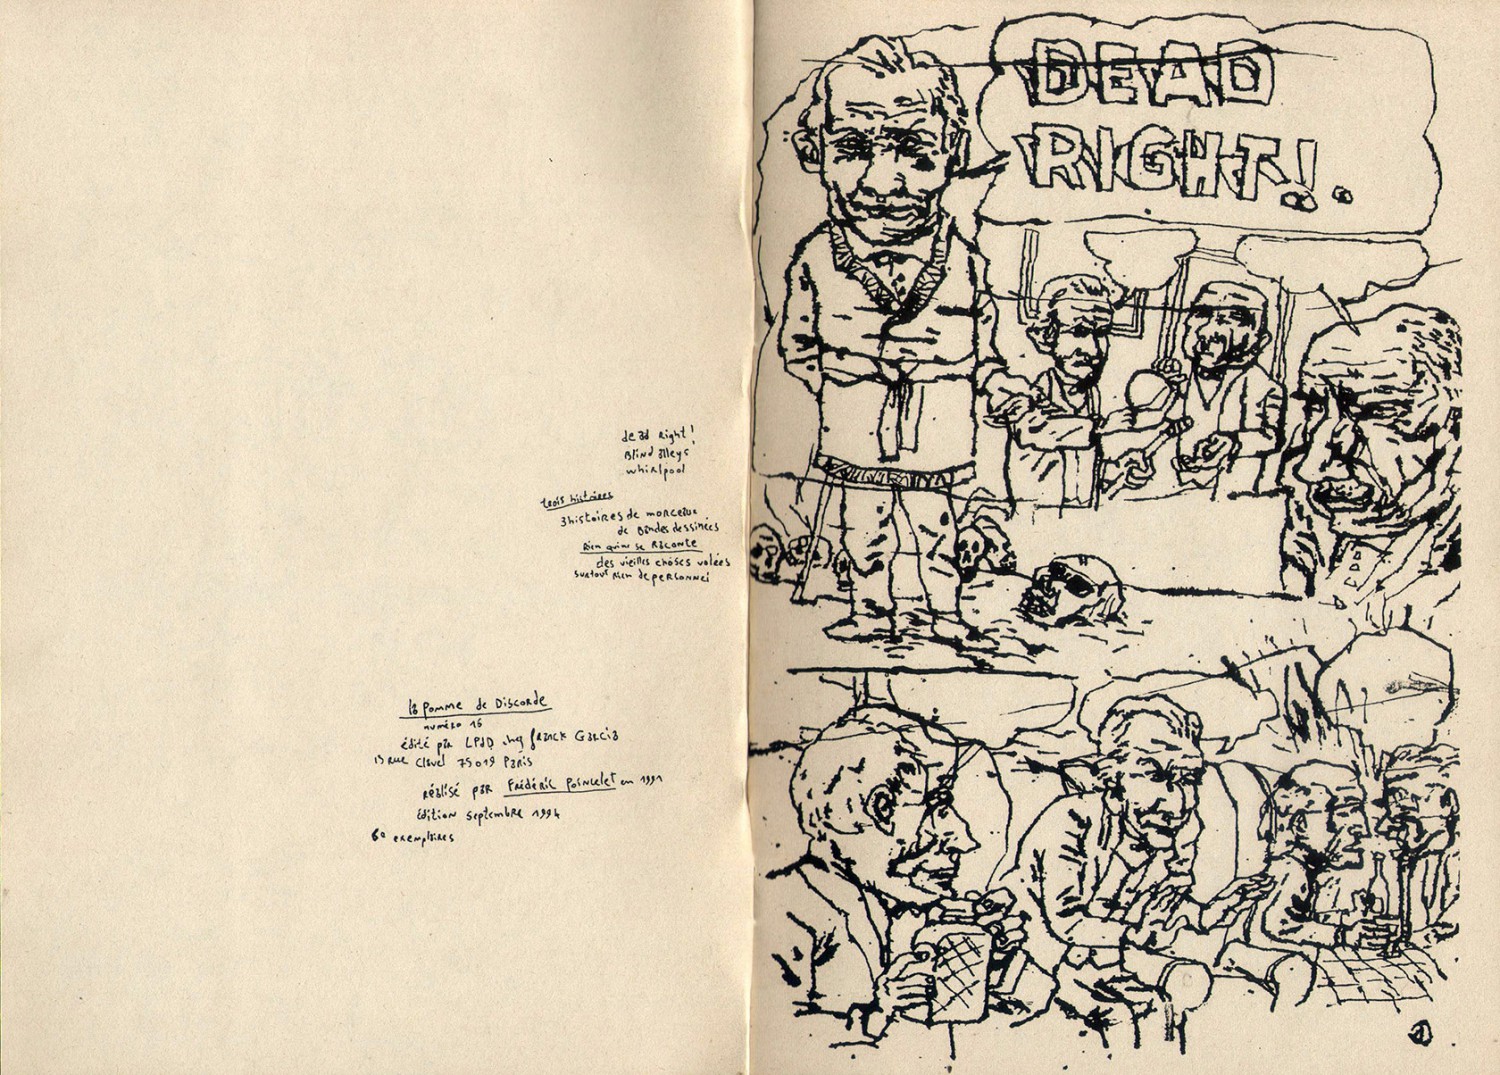 dead right!
Blind alleys
whirlpool
trois histoires
3 histoires de morceaux
de Bandes dessinées
Rien qui se Raconte
des vieilles choses volées
surtout Rien de personnel
la Pomme de Discorde
numéro 15
édité par LPDD chez Franck Garcia
13 rue Clavel 75019 Paris
réalisé par Frédéric Poincelet en 1991
édition septembre 1994
60 exemplaires
DEAD
RIGHT!.
1